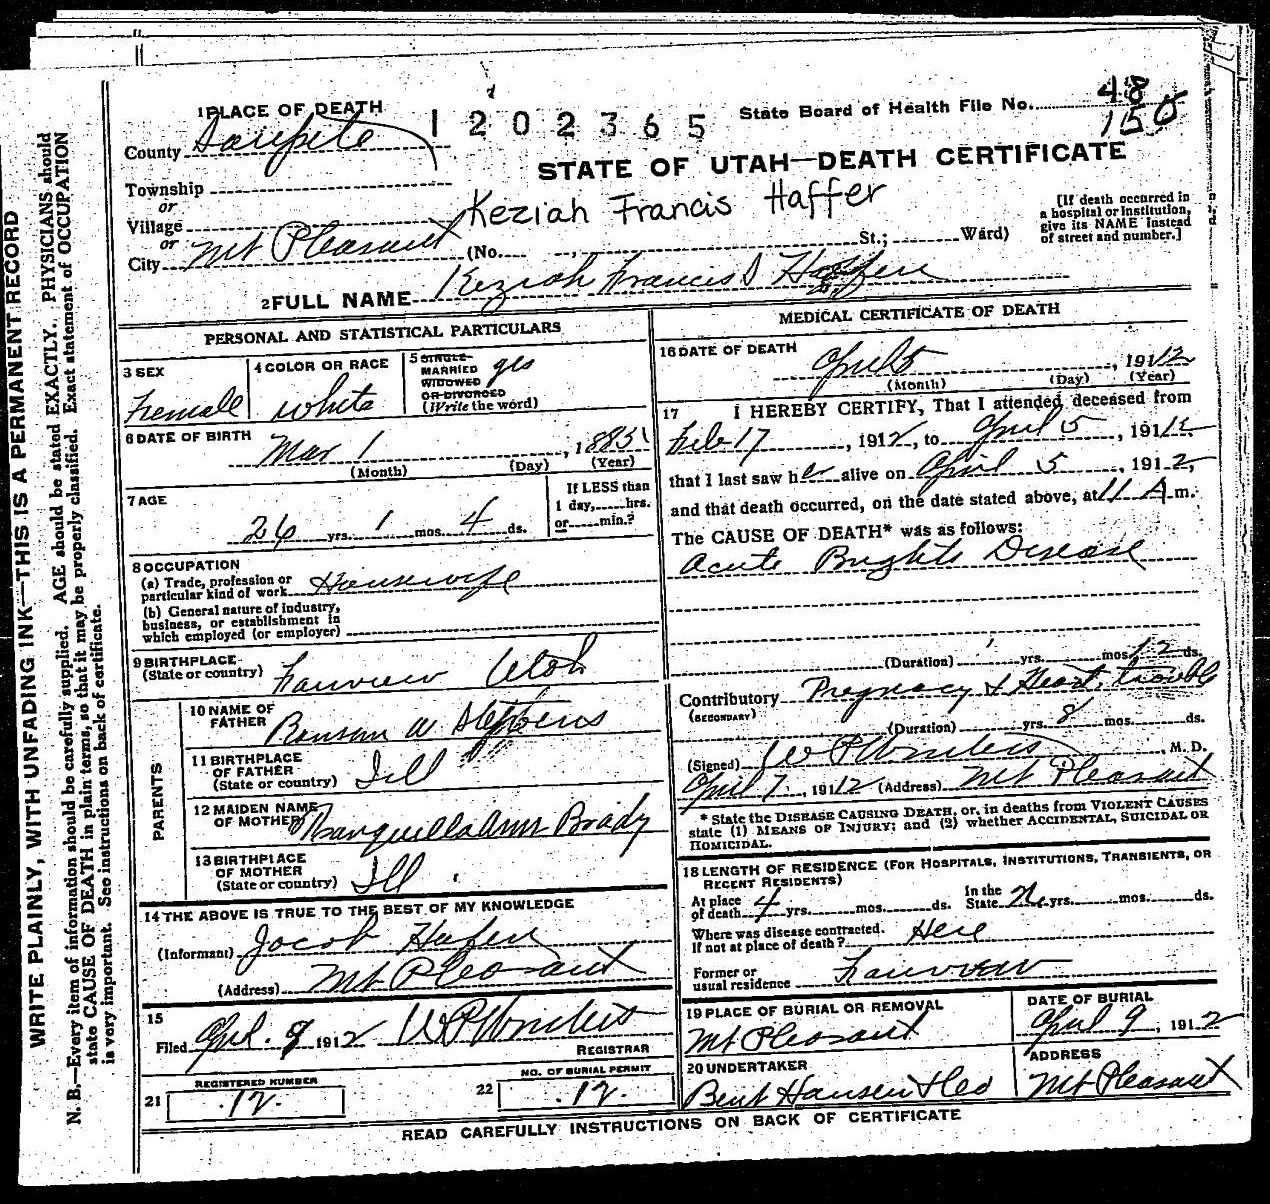 48
1 PLACE OF DEATH 1202365 State Board of Health File No. 150
County Sanpete
STATE OF UTAH—DEATH CERTIFICATE
Township
or
Village Keziah Francis Haffer
or
City Mt Pleasant (No. St.; Ward)
[If death occurred in
a hospital or institution,
give its NAME instead
of street and number.]
2 FULL NAME Keziah Francis S Hafen
PERSONAL AND STATISTICAL PARTICULARS
3 SEX
Femall
4 COLOR OR RACE
white
5 SINGLE
MARRIED yes
WIDOWED
OR DIVORCED
(Write the word)
6 DATE OF BIRTH
Mar 1, 1885
(Month) (Day) (Year)
7 AGE
26 yrs. 1 mos. 4 ds.
If LESS than
1 day, hrs.
or min.?
8 OCCUPATION
(a) Trade, profession or
particular kind of work Housewife
(b) General nature of industry,
business, or establishment in
which employed (or employer)
9 BIRTHPLACE
(State or country) Fairview Utah
PARENTS
10 NAME OF
FATHER Ransom W Stephens
11 BIRTHPLACE
OF FATHER
(State or country) Ill
12 MAIDEN NAME
OF MOTHER Ann Brady
13 BIRTHPLACE
OF MOTHER
(State or country) Ill
14 THE ABOVE IS TRUE TO THE BEST OF MY KNOWLEDGE
(Informant) Jacob Hafen
(Address) Mt Pleasant
15
Filed April 9 1912 W P Winters
REGISTRAR
21 REGISTERED NUMBER
12.
22 NO. OF BURIAL PERMIT
12.
MEDICAL CERTIFICATE OF DEATH
16 DATE OF DEATH
April 5, 1912
(Month) (Day) (Year)
17 I HEREBY CERTIFY, That I attended deceased from
Feb 17, 1912, to April 5, 1912
that I last saw her alive on April 5, 1912,
and that death occurred, on the date stated above, at 11 A m.
The CAUSE OF DEATH* was as follows:
Acute Brights Disease
(Duration) yrs. mos. 12 ds.
Contributory Pregnacy & Heart trouble
(SECONDARY)
(Duration) yrs. 8 mos. ds.
(Signed) W P Winters M. D.
April 7, 1912 (Address) Mt Pleasant
* State the DISEASE CAUSING DEATH, or, in deaths from VIOLENT CAUSES
state (1) MEANS OF INJURY; and (2) whether ACCIDENTAL, SUICIDAL OR
HOMICIDAL.
18 LENGTH OF RESIDENCE (FOR HOSPITALS, INSTITUTIONS, TRANSIENTS, OR
RECENT RESIDENTS)
At place
of death 4 yrs. mos. ds.
In the
State yrs. mos. ds.
Where was disease contracted.
If not at place of death? Here
Former or
usual residence Fairview
19 PLACE OF BURIAL OR REMOVAL
Mt Pleasant
DATE OF BURIAL
April 9, 1912
20 UNDERTAKER
Bent Hansen & Co
ADDRESS
Mt Pleasant
READ CAREFULLY INSTRUCTIONS ON BACK OF CERTIFICATE
WRITE PLAINLY, WITH UNFADING INK—THIS IS A PERMANENT RECORD
N. B.—Every item of information should be carefully supplied. AGE should be stated EXACTLY. PHYSICIANS should
state CAUSE OF DEATH in plain terms, so that it may be properly classified. Exact statement of OCCUPATION
is very important. See instructions on back of certificate.